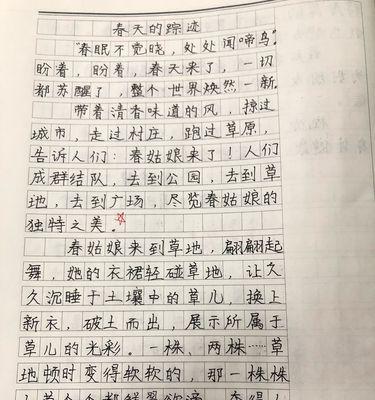 春天的踪迹
"春眠不觉晓，处处闻啼鸟"
盼着，盼着，春天来了，一切
都苏醒了，整个世界焕然一新。
带着清香味道的风，掠过
城市，走过村庄，跑过草原，
告诉人们：春姑娘来了！人们
成群结队，去到公园，去到草
地，去到广场，尽览春姑娘的
独特之美。
春姑娘来到草地，翩翩起
舞，她的衣裙轻碰草地，让久
久沉睡于土壤中的草儿，换上
新衣，破土而出，展示所属于
草儿的光彩。一株、两株……草
地顿时变得软软的，那一株株